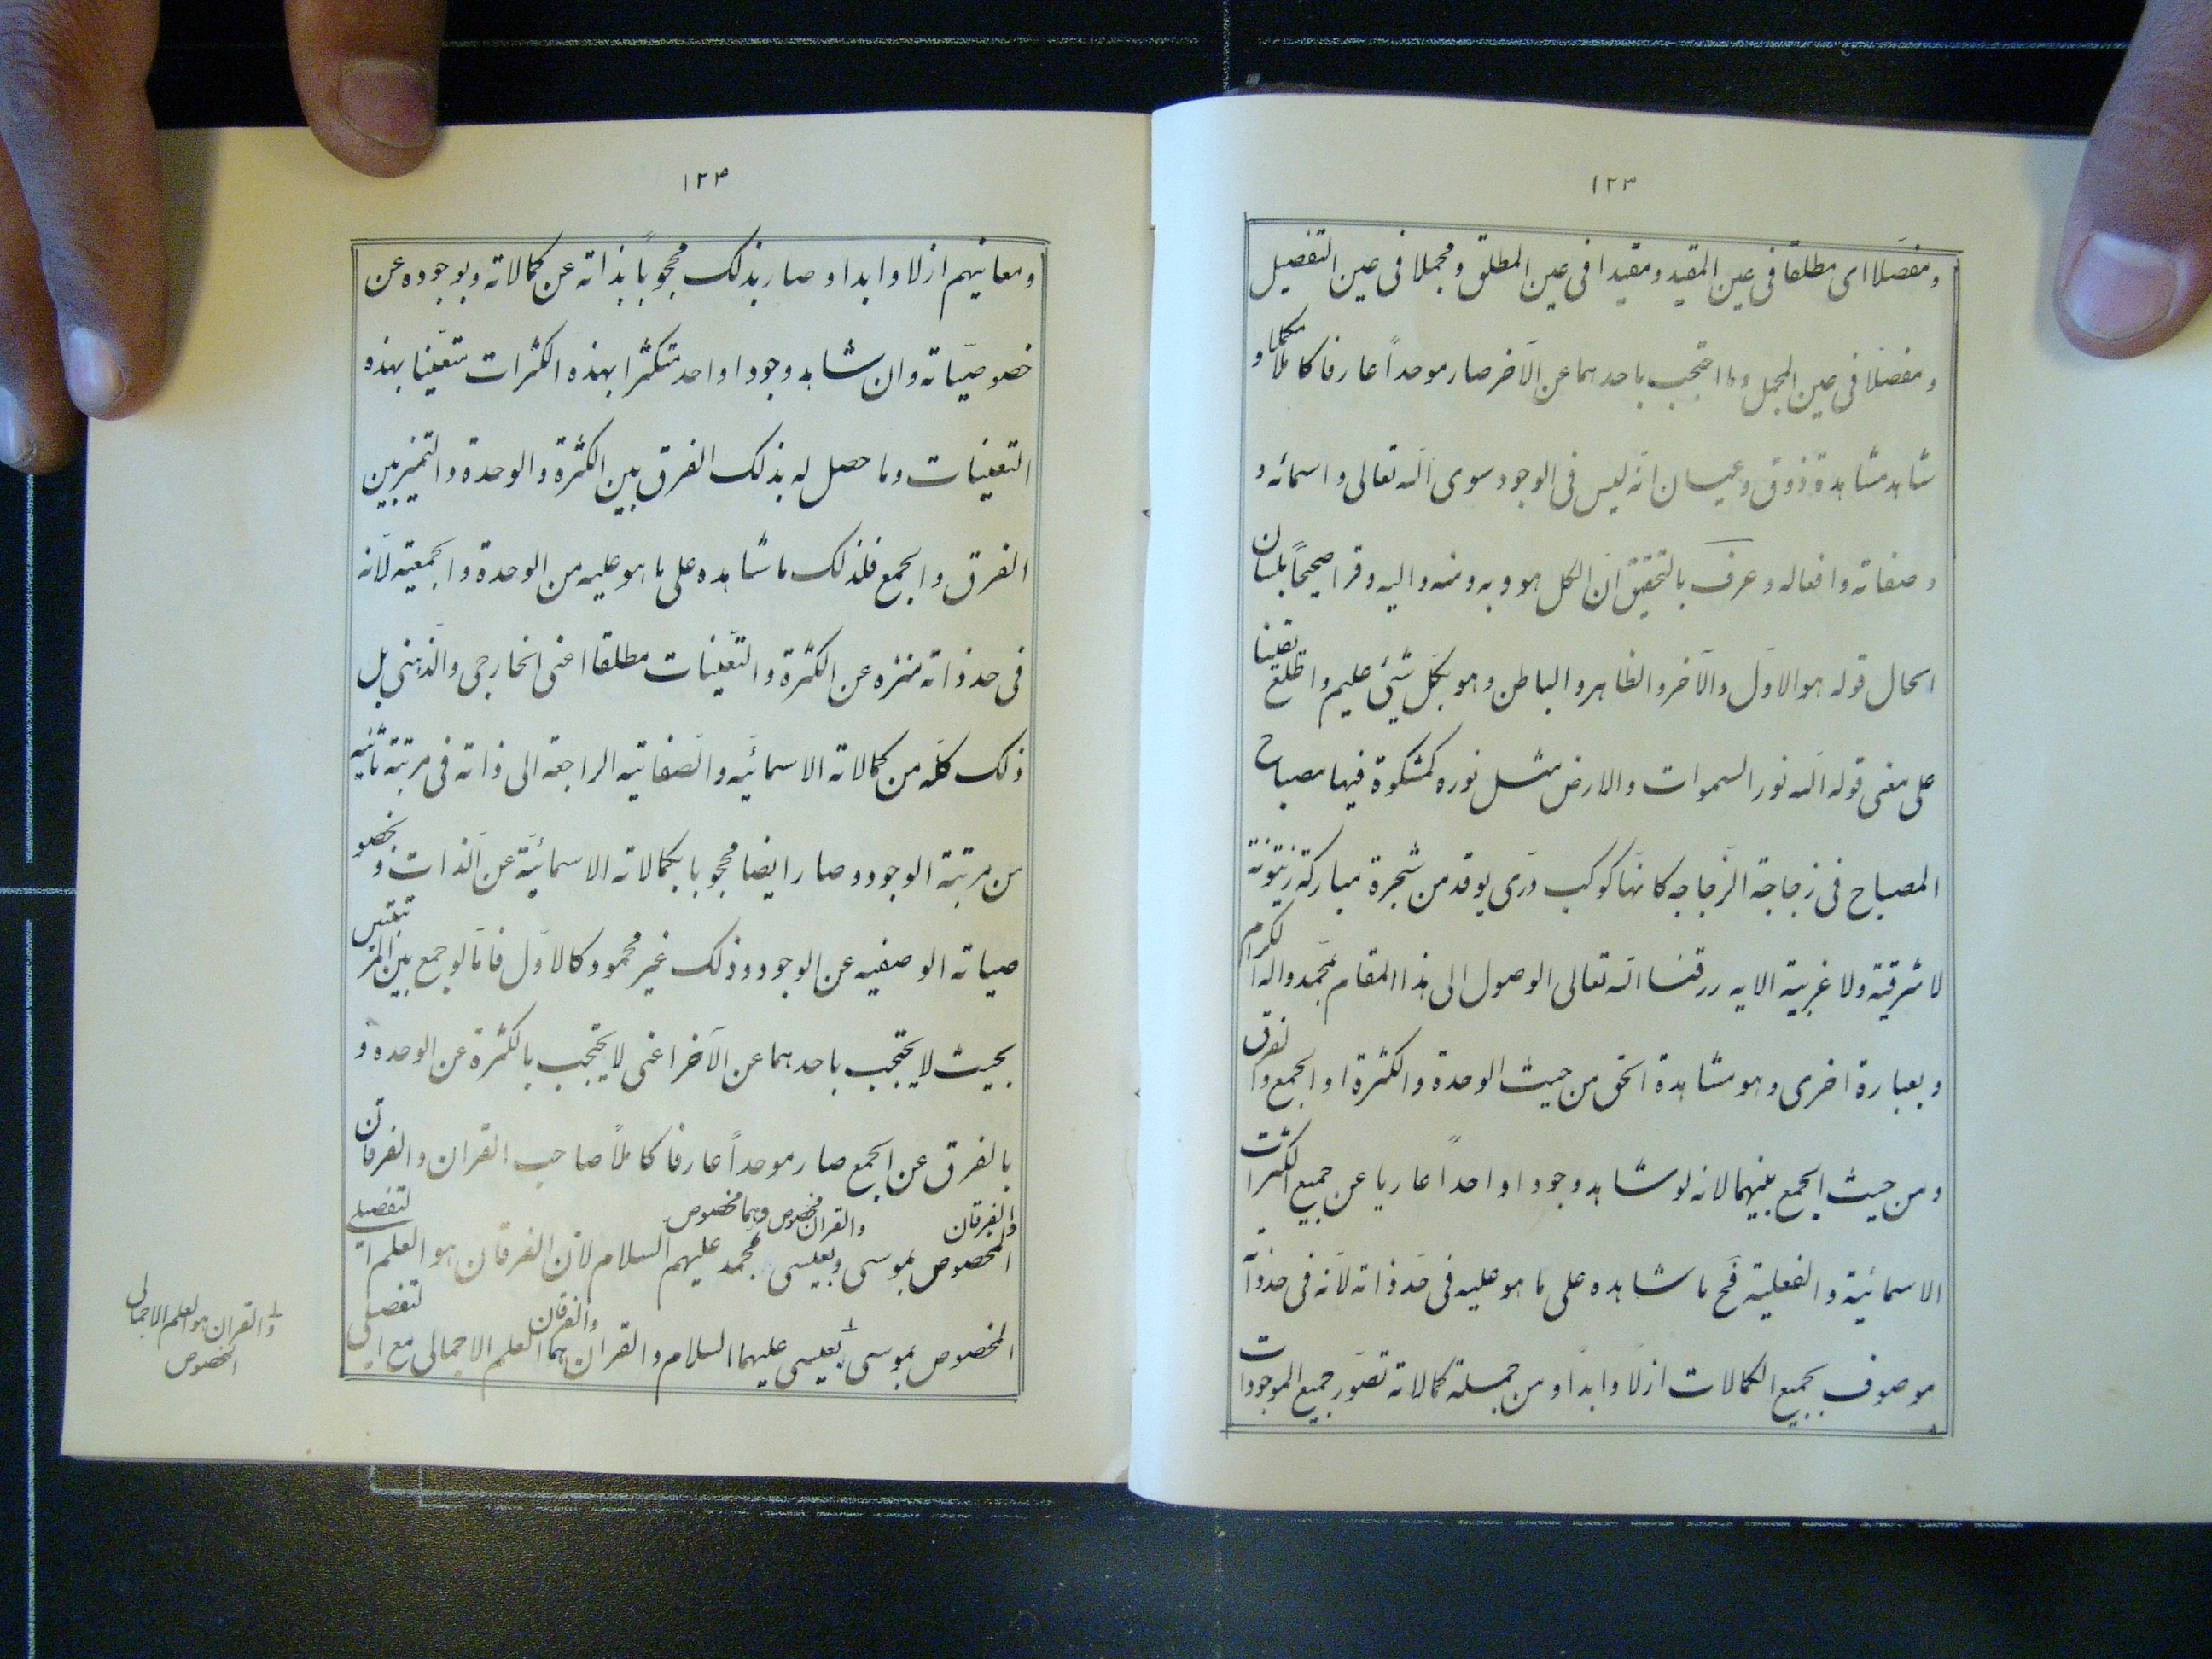 ١٢٣
ومفصّلا ای مطلقا فی عین المقید ومقیدا فی عین المطلق ومجملا فی عین التفصیل
ومفصلا فی عین المجمل وما احتجب باحدهما عن الآخر صار موحداً عارفا کاملا مکملا و
شاهد مشاهدة ذوق وعیان انّه لیس فی الوجود سوی الله تعالی واسمائه و
وصفاته وافعاله وعرف بالتحقیق انّ الکل هو وبه ومنه والیه وقرا صحیحاً بلسان
الحال قوله هو الاوّل والآخر والظاهر والباطن وهو بکل شیئ علیم واطلع یقینا
علی معنی قوله الله نور السموات والارض مثل نوره کمشکوة فیها مصباح
المصباح فی زجاجة الزّجاجه کانّها کوکب درّی یوقد من شجرة مبارکة زیتونة
لا شرقیّة ولا غربیة الایه رزقنا الله تعالی الوصول الی هذا المقام بمحمّد واله الکرام
وبعبارة اخری وهو مشاهدة الحق من حیث الوحدة والکثرة او الجمع والفرق
ومن حیث الجمع بینهما لانه لو شاهد وجودا واحداً عاریا عن جمیع الکثرات
الاسمائیّة والفعلیّة فح ما شاهده علی ما هو علیه فی حدّ ذاته لانّه فی حد ذاته
موصوف بجمیع الکمالات ازلا وابدا ومن جملة کمالاته تصوّر جمیع الموجودات
١٢٤
ومعانیهم ازلا وابدا وصار بذلک محجوباً بذاته عن کمالاته وبوجوده عن
خصوصیّاته وان شاهد وجودا واحد متکثرا بهذه الکثرات متعیّنا بهذه
التعینات وما حصل له بذلک الفرق بین الکثرة والوحدة والتمیز بین
الفرق والجمع فلذلک ما شاهده علی ما هو علیه من الوحدة والجمعیّة لانّه
فی حد ذاته منزه عن الکثرة والتعّینات مطلقا اعنی الخارجی والذّهنی بل
ذلک کلّه من کمالاته الاسمائیّه والصّفاتیه الراجعة الی ذاته فی مرتبة ثانیه
من مرتبة الوجود وصار ایضا محجوبا بکمالاته الاسمائیّة عن الذات وبخصو
صیاته الوصفیه عن الوجود وذلک غیر محمود کالاوّل فامّا لو جمع بین المرتبتین
بحیث لا یحتجب باحدهما عن الآخر اعنی لا یحتجب بالکثرة عن الوحدة و
بالفرق عن الجمع صار موحداً عارفا کاملاً صاحب القران والفرقان
والفرقان والقران مخصوص وهما مخصوص
المخصوص بموسی وبعیسی بمحمد علیهم السلام لانّ الفرقان هو العلم التفصیلی
المخصوص بموسی بعیسی علیهما السلام والقران والفرقان هما العلم الاجمالی مع التفصیلی
والقران هو العلم الاجمالی
المخصوص